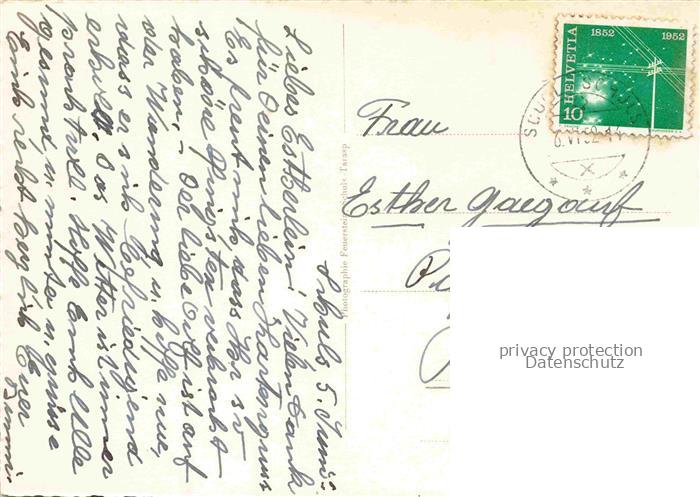 Schuls 5. Juni
Liebes Estherlein! Vielen Dank
für Deinen lieben Kartengruss
Es freut mich, dass Ihr so
schöne Pfingsten verbracht
haben, – Odi ist auf
der Wanderung u. hoffe nur,
dass er sich befriedigend
erholt, das Wetter ist immer
prachtvoll. Hoffe Euch Alle
gesund u. munter u. grüsse
Euch recht herzlich Eure
Photographie Feuerstein, Schuls-Tarasp
1852 1952
HELVETIA
10
6.VI.52-14
Frau
Esther Gaegauf
privacy protection
Datenschutz